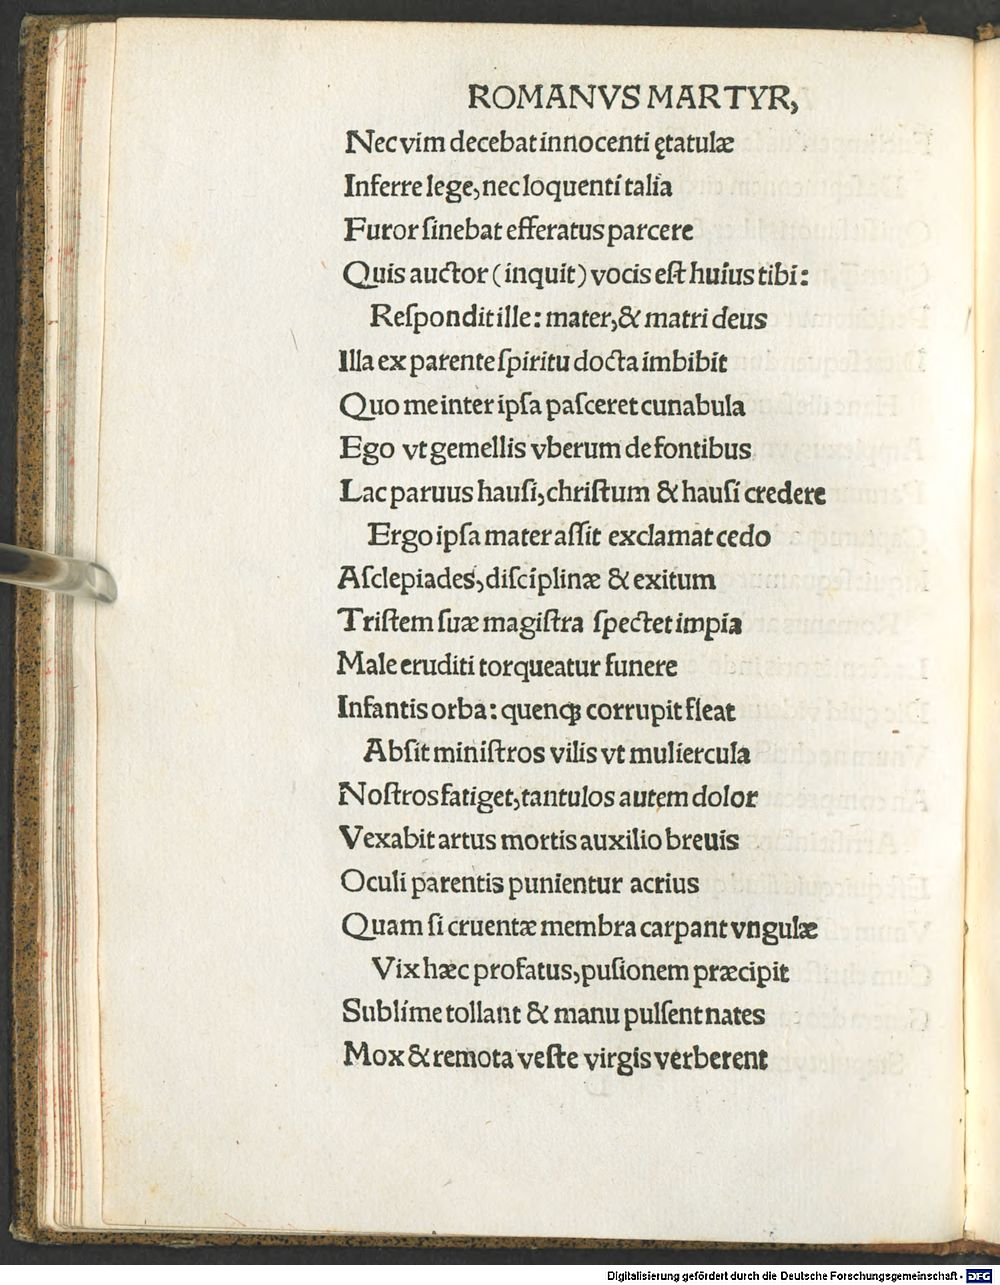 ROMANVS MARTYR,
Nec vim decebat innocenti ętatulæ
Inferre lege, nec loquenti talia
Furor ſinebat efferatus parcere
Quis auctor (inquit) vocis eſt huius tibi:
Reſpondit ille: mater, & matri deus
Illa ex parente ſpiritu docta imbibit
Quo me inter ipſa paſceret cunabula
Ego vt gemellis vberum de fontibus
Lac paruus hauſi, chriſtum & hauſi credere
Ergo ipſa mater aſſit exclamat cedo
Aſclepiades, diſciplinæ & exitum
Triſtem ſuæ magiſtra ſpectet impia
Male eruditi torqueatur funere
Infantis orba: quenqꝫ corrupit fleat
Abſit miniſtros vilis vt muliercula
Noſtros fatiget, tantulos autem dolor
Vexabit artus mortis auxilio breuis
Oculi parentis punientur acrius
Quam ſi cruentæ membra carpant vngulæ
Vix hæc profatus, puſionem præcipit
Sublime tollant & manu pulſent nates
Mox & remota veſte virgis verberent
Digitalisierung gefördert durch die Deutsche Forschungsgemeinschaft - DFG